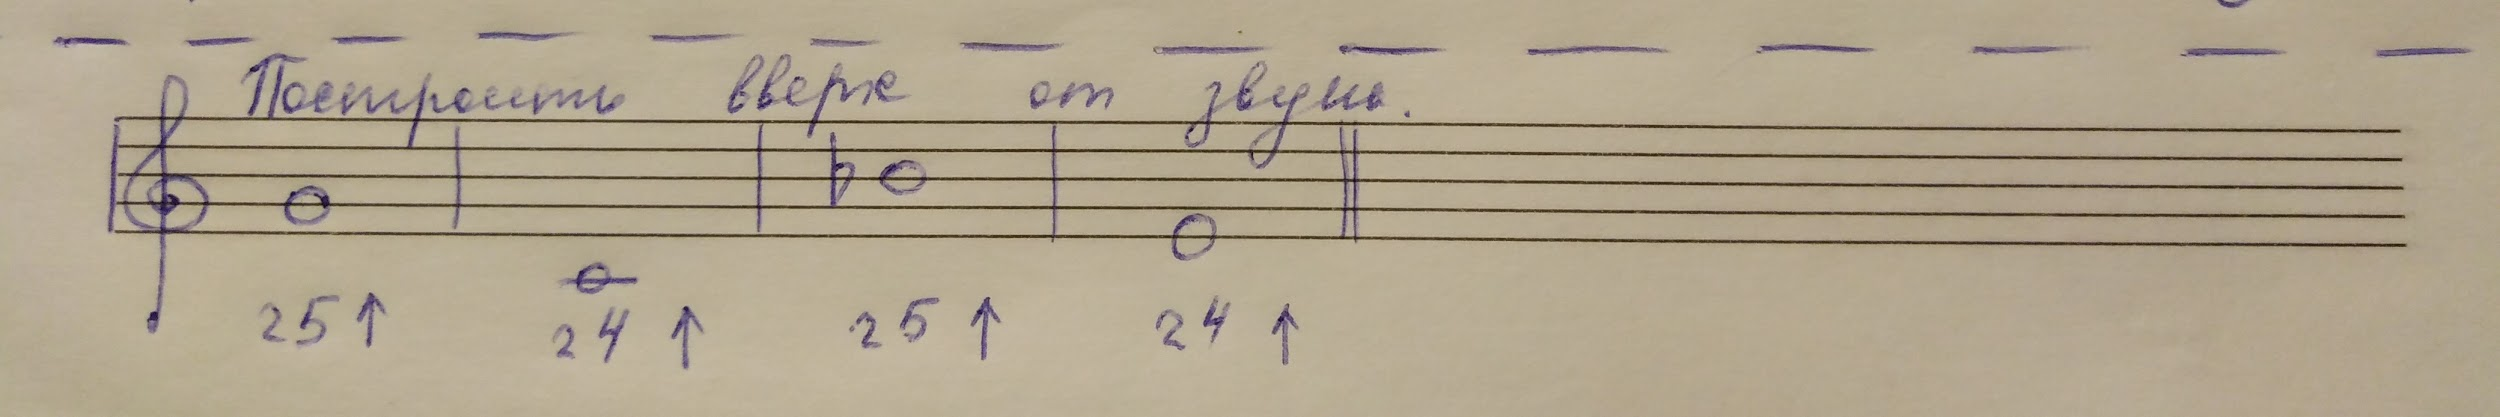 Построить вверх от звука.
ч5↑ ч4↑ ч5↑ ч4↑